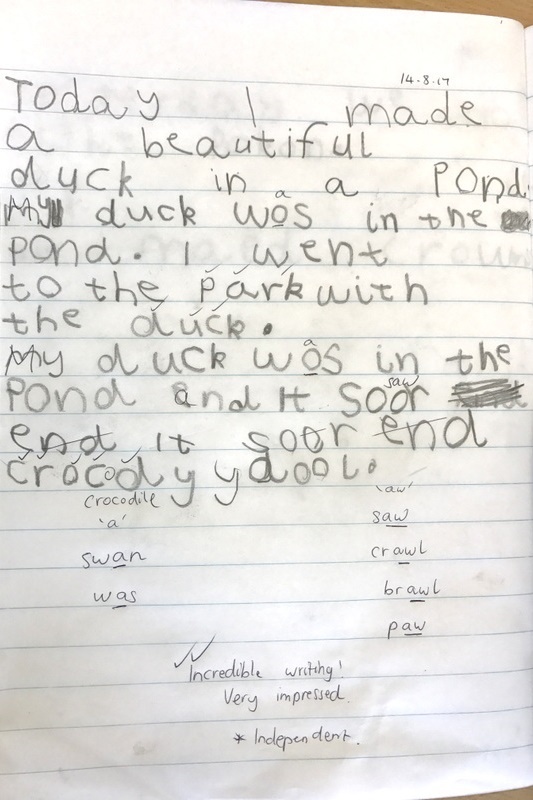 14-8-17
Today I made
a beautiful
duck in a Pond.
a
My duck wos in the
pond. I went
to the park with
the duck.
a
My duck wos in the
saw
Pond and It soor
end It soor end
crocody ydool.
crocodile
'aw'
'a'
saw
swan
crawl
was
brawl
paw
Incredible writing!
Very impressed.
* Independent.